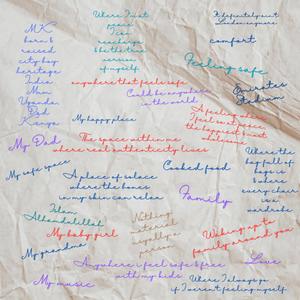 MK
born &
raised
city boy
heritage
India
Mum
Uganda
Dad
Kenya
Where I must
peace
I can
recharge
& be the true
version
of myself
It definitely isn't
London anymore
comfort
Feeling safe
anywhere that feels safe
Could be anywhere
in the world
Emirates
Stadium
My happy place
A feeling where
I feel some
the happiest &
My Dad
The space within me
where real authenticity lives
Where the
bag full of
bags is
where
every chair
is a
wardrobe
My safe space
A place of solace
where the bones
in my skin can relax
Cooked food
Family
Islam
Alhamdulillah
Nothing
material
usually a
person
My baby girl
Waking up to
family around you
My grandma
Anywhere i feel safe & free
with my kids
Love
My music
Where I always go
if I weren't feeling myself